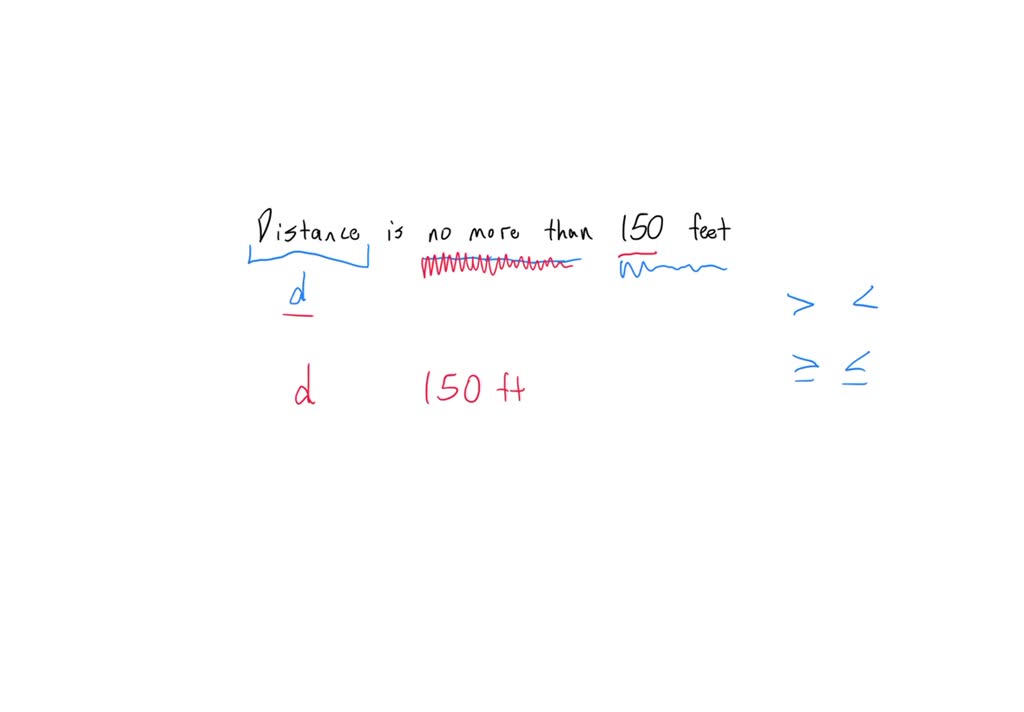 Distance is no more than 150 feet
d
> <
≥ ≤
d 150 ft